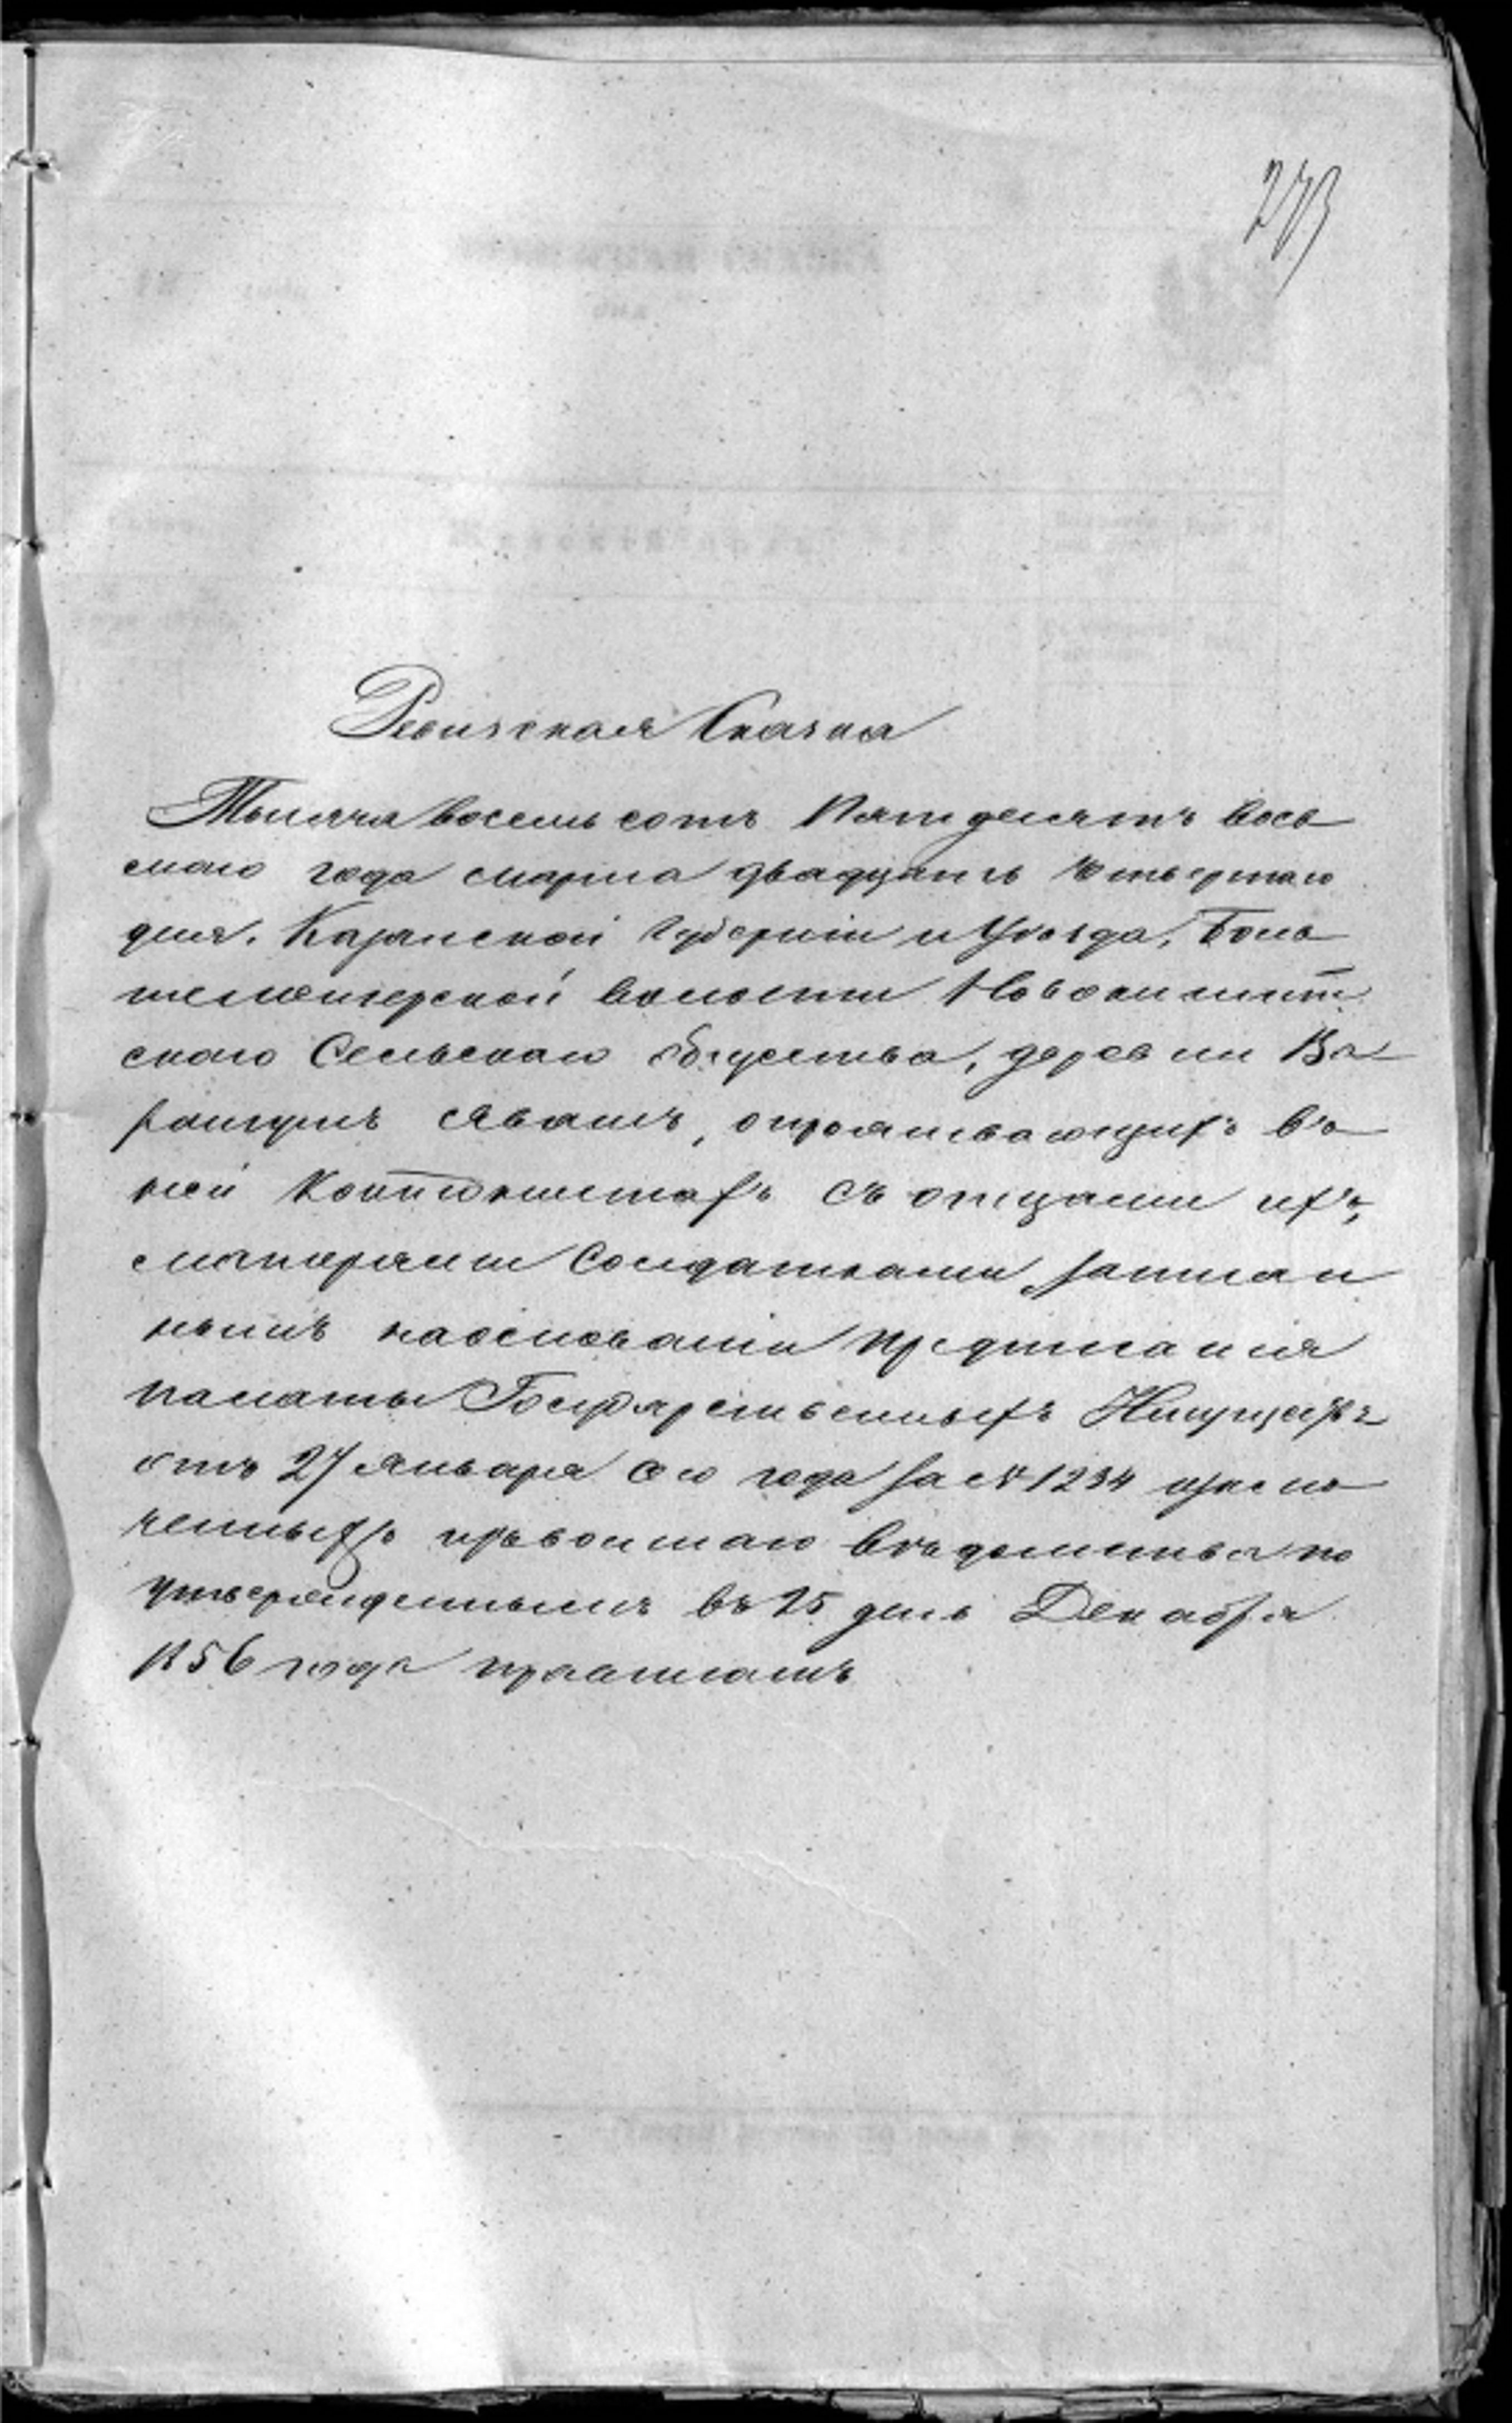 273
Ревизская Сказка
Тысяча восемь сотъ Пятдесятъ вось
маго года марта двадцать четвертаго
дня. Казанской Губерніи и Уѣзда, Боль
шеменгерской волости Новокишит
скаго Сельскаго общества, деревни
Явашъ, о проживающихъ въ
ней Контонистахъ съ отцами ихъ,
матерями солдатками, записан
нымъ на основаніи предписанія
палаты Государственныхъ Имуществъ
отъ 27 Января сего года за № 1234 исклю
ченныхъ изъ военнаго вѣдомства по
утвержденнымъ въ 25 день Декабря
1856 года правиламъ